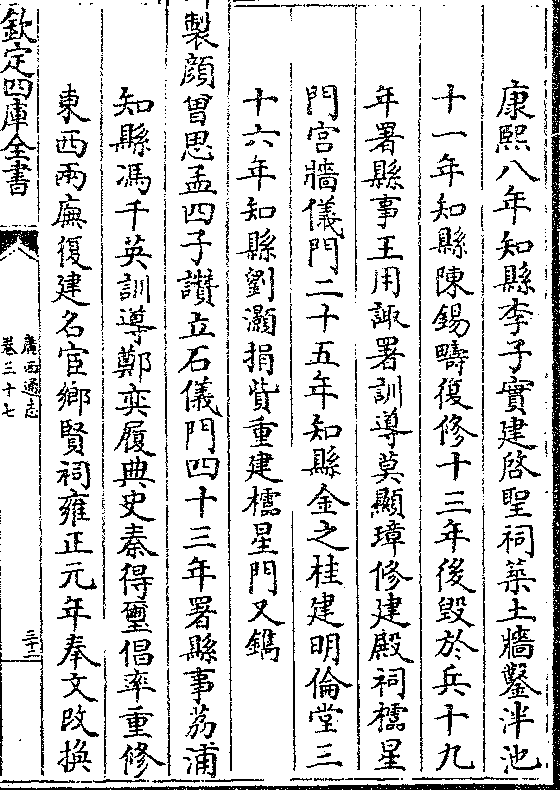 康熙八年知縣李子實建啓聖祠築土牆鑿泮池
十一年知縣陳錫疇復修十三年後毀於兵十九
年署縣事王用諏署訓導莫顯璋修建殿祠櫺星
門宮牆儀門二十五年知縣金之桂建明倫堂三
十六年知縣劉灝捐貲重建櫺星門又鐫
製顔曾思孟四子讚立石儀門四十三年署縣事荔浦
知縣馮千英訓導鄭奕履典史秦得璽倡率重修
東西兩廡復建名宦鄉賢祠雍正元年奉文改換
欽定四庫全書
廣西通志
卷三十七